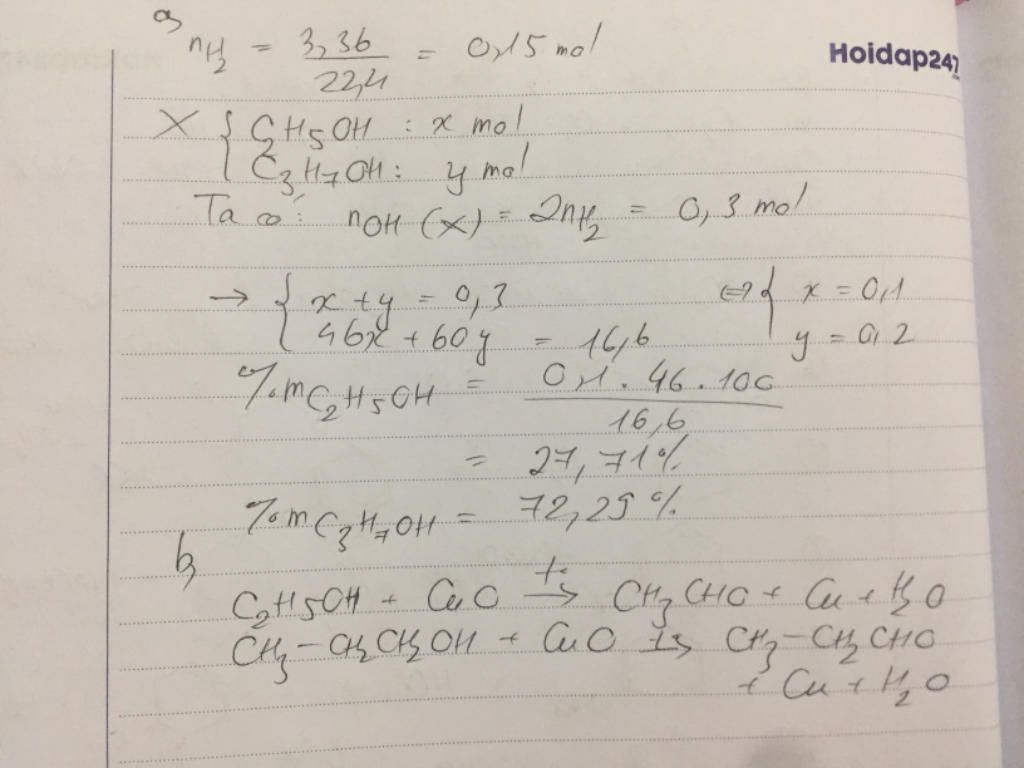 a) nH2 = 3,36/22,4 = 0,15 mol
Hoidap247
X { C2H5OH : x mol
C3H7OH : y mol
Ta có: nOH (X) = 2nH2 = 0,3 mol
→ { x + y = 0,3 ⇔ { x = 0,1
46x + 60y = 16,6 y = 0,2
%mC2H5OH = 0,1 . 46 . 100 / 16,6
= 27,71%
%mC3H7OH = 72,29%
b)
C2H5OH + CuO t°→ CH3CHO + Cu + H2O
CH3-CH2CH2OH + CuO t°→ CH3-CH2CHO
+ Cu + H2O